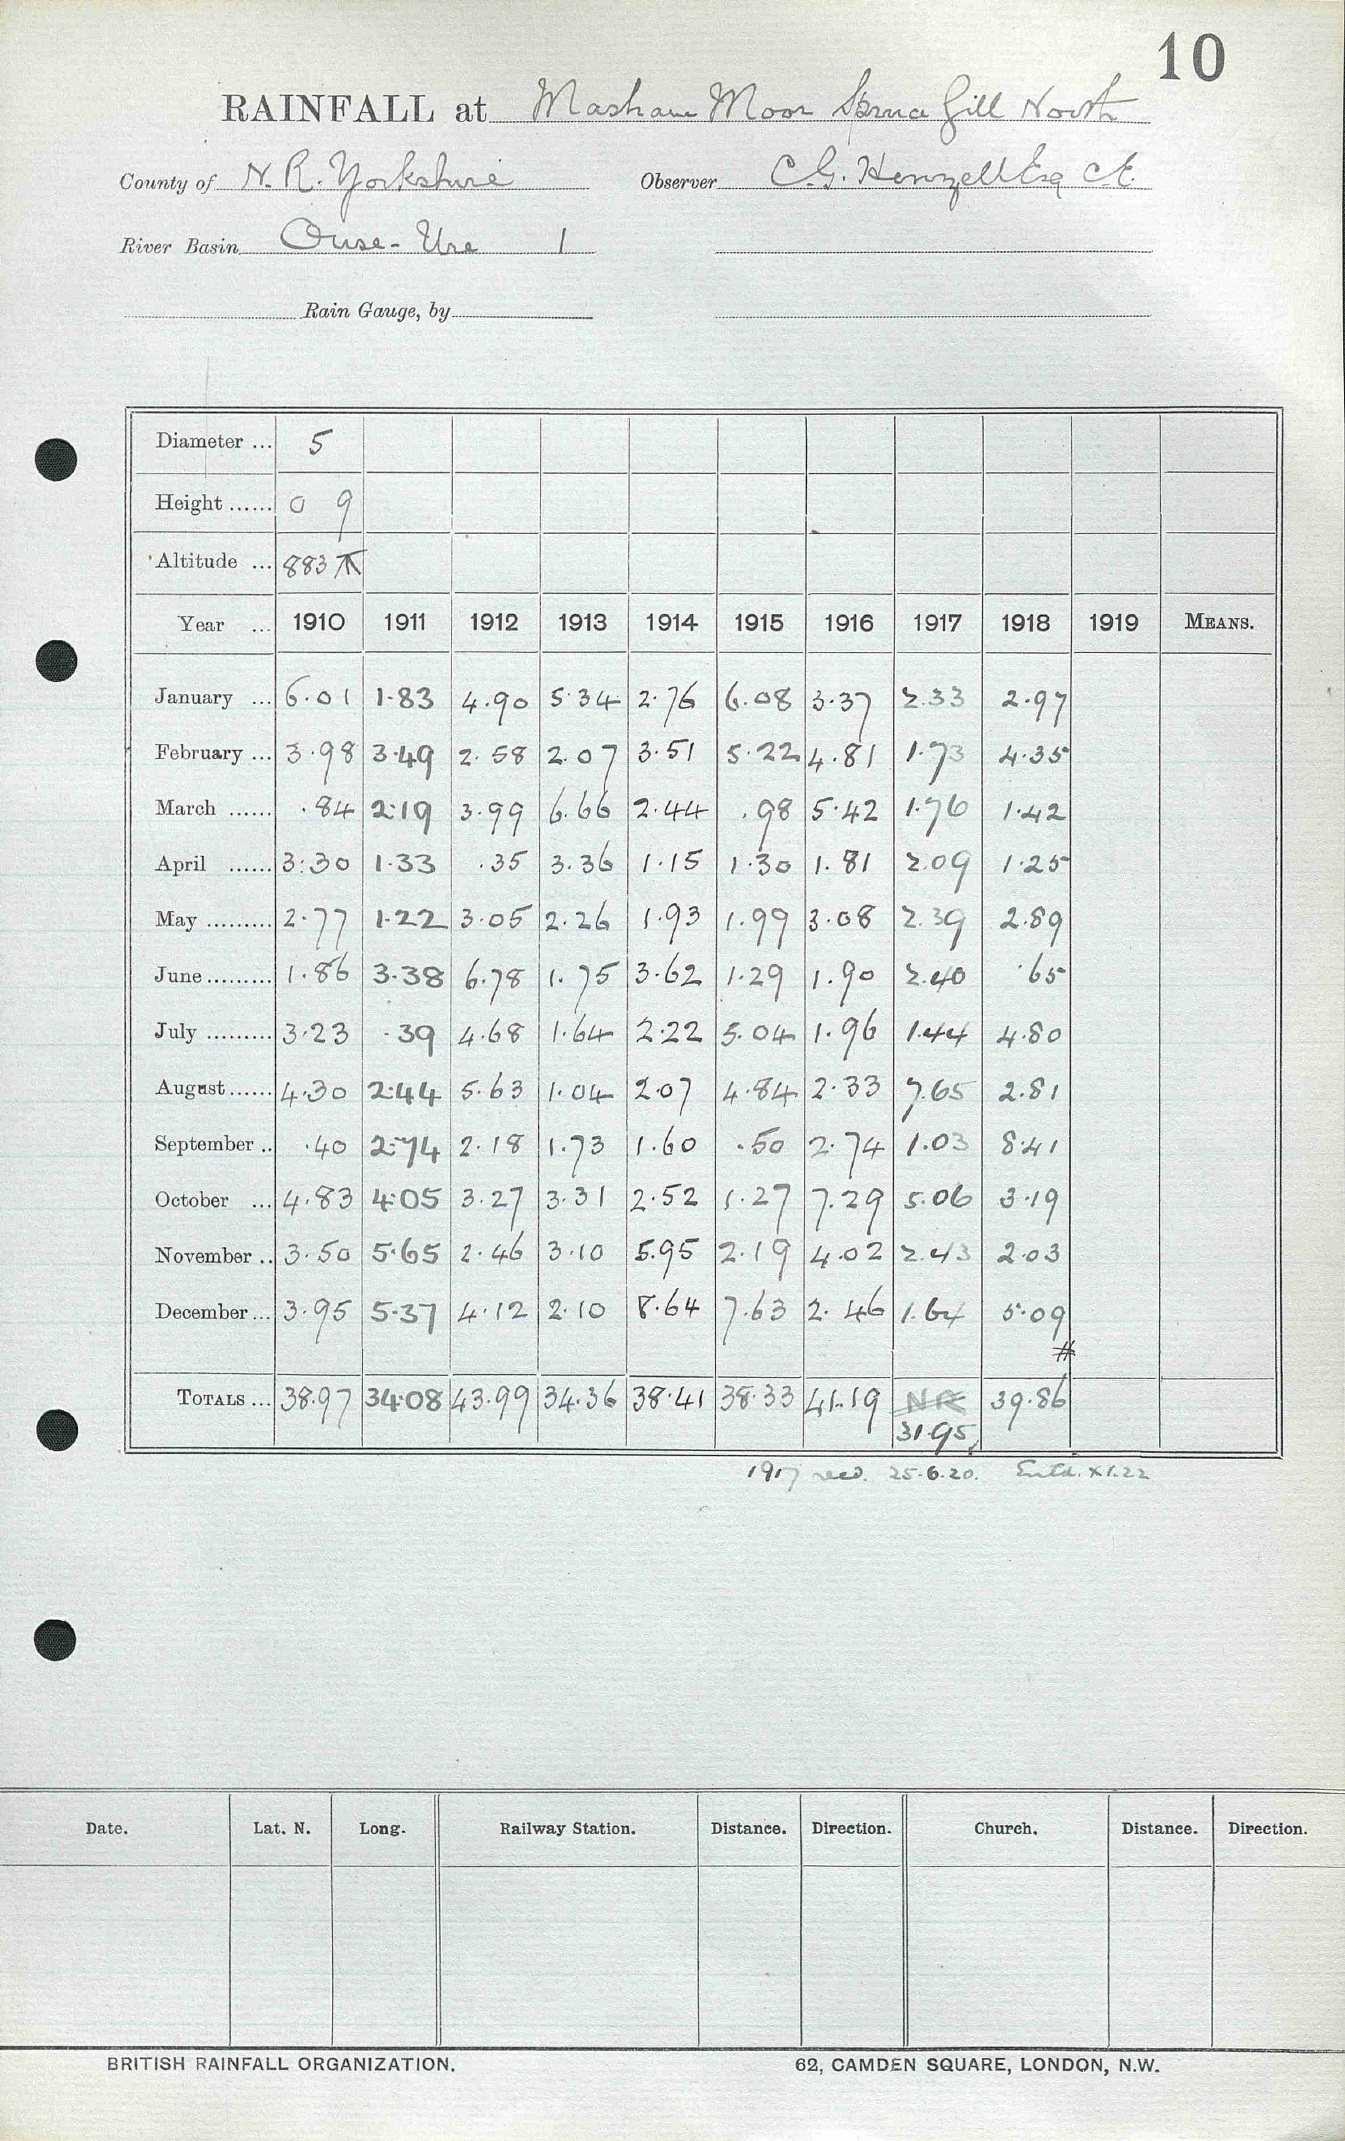 10
RAINFALL at Masham Moor Spruce Gill North
County of N. R. Yorkshire Observer C. G. Henzell Esq C.E.
River Basin Ouse - Ure 1
Rain Gauge, by
Diameter ... 5
Height ...... 0 9
Altitude ... 883
Year ... 1910 1911 1912 1913 1914 1915 1916 1917 1918 1919 MEANS.
January ... 6.01 1.83 4.90 5.34 2.76 6.08 3.37 2.33 2.97
February ... 3.98 3.49 2.58 2.07 3.51 5.22 4.81 1.73 4.35
March ...... .84 2.19 3.99 6.66 2.44 .98 5.42 1.76 1.42
April ...... 3.30 1.33 .35 3.36 1.15 1.30 1.81 2.09 1.25
May ......... 2.77 1.22 3.05 2.26 1.93 1.99 3.08 2.39 2.89
June ......... 1.86 3.38 6.78 1.75 3.62 1.29 1.90 2.40 .65
July ......... 3.23 .39 4.68 1.64 2.22 5.04 1.96 1.44 4.80
August ...... 4.30 2.44 5.63 1.04 2.07 4.84 2.33 7.65 2.81
September .. .40 2.74 2.18 1.73 1.60 .50 2.74 1.03 8.41
October ... 4.83 4.05 3.27 3.31 2.52 1.27 7.29 5.06 3.19
November .. 3.50 5.65 2.46 3.10 5.95 2.19 4.02 2.43 2.03
December ... 3.95 5.37 4.12 2.10 8.64 7.63 2.46 1.64 5.09
#
TOTALS ... 38.97 34.08 43.99 34.36 38.41 38.33 41.19 NR 39.86
31.95
1917 recd. 25.6.20. Entd. X1.22
Date. Lat. N. Long. Railway Station. Distance. Direction. Church. Distance. Direction.
BRITISH RAINFALL ORGANIZATION. 62, CAMDEN SQUARE, LONDON, N.W.